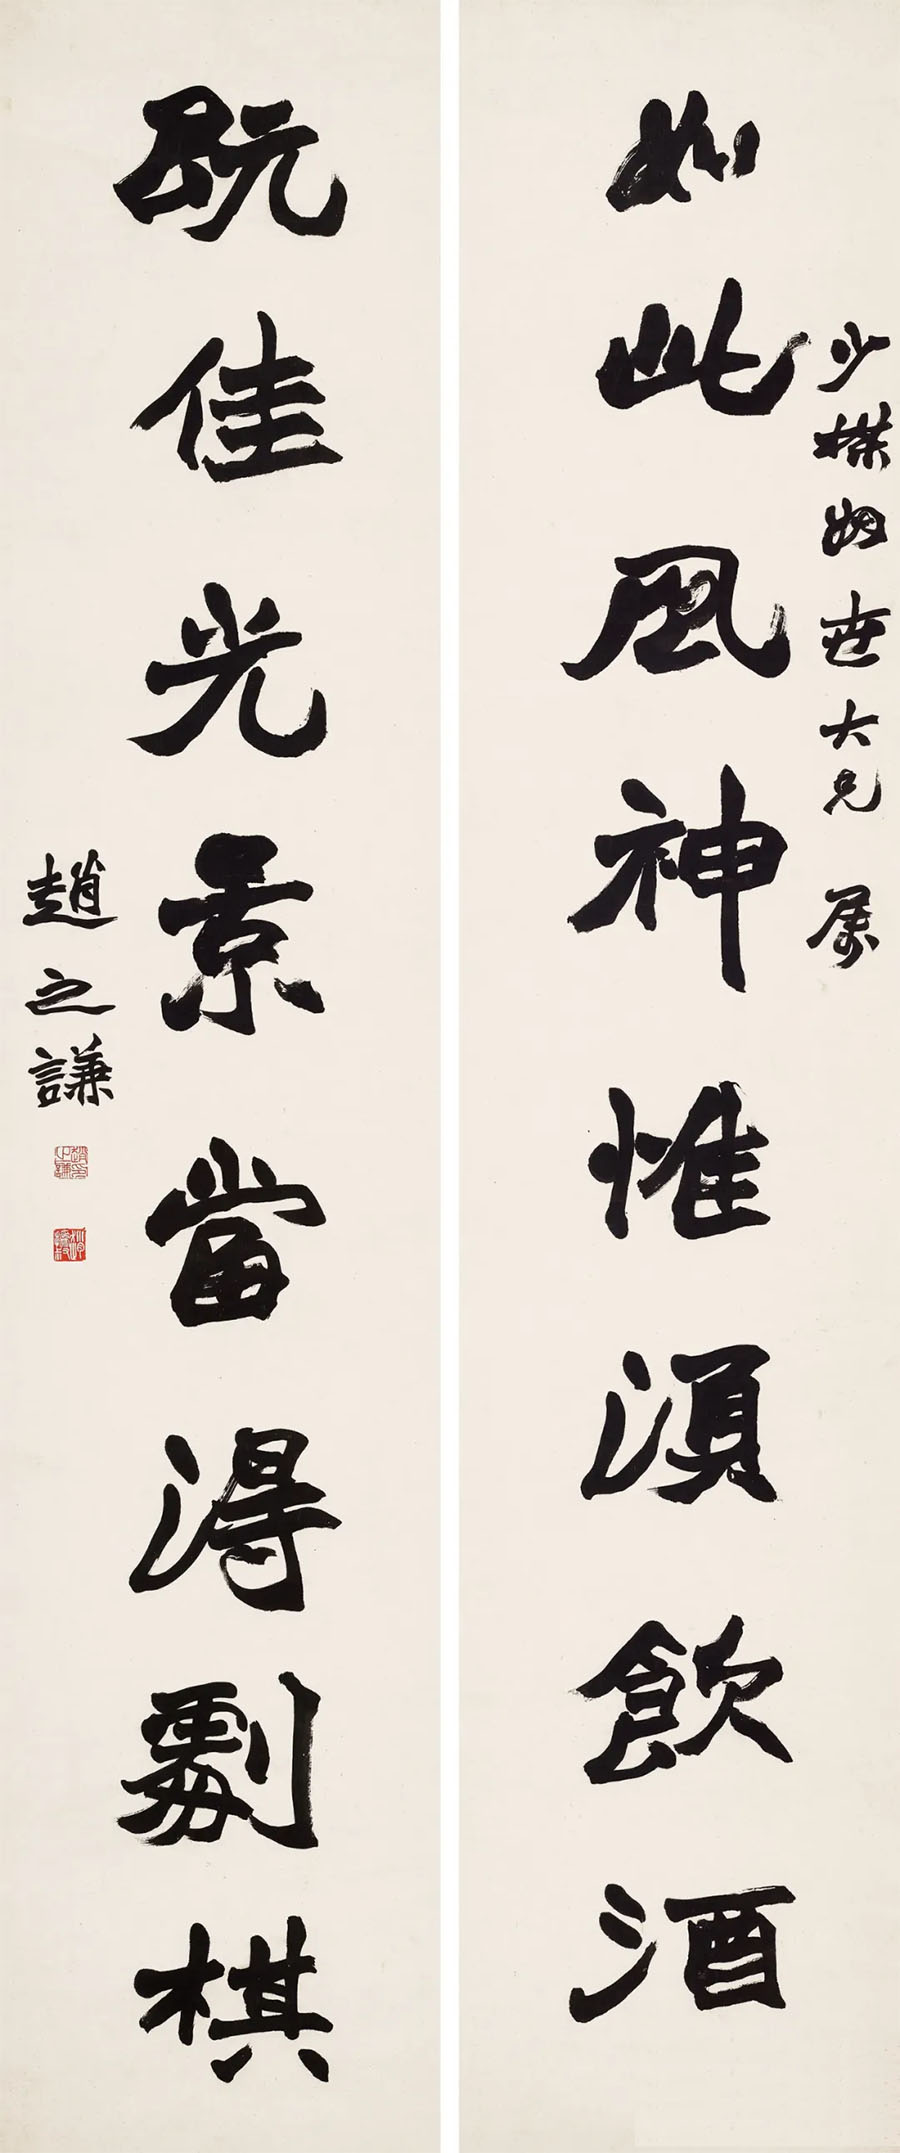 少棋姻世大兄属
如此風神惟須飲酒
既佳光景當得劇棋
趙之謙